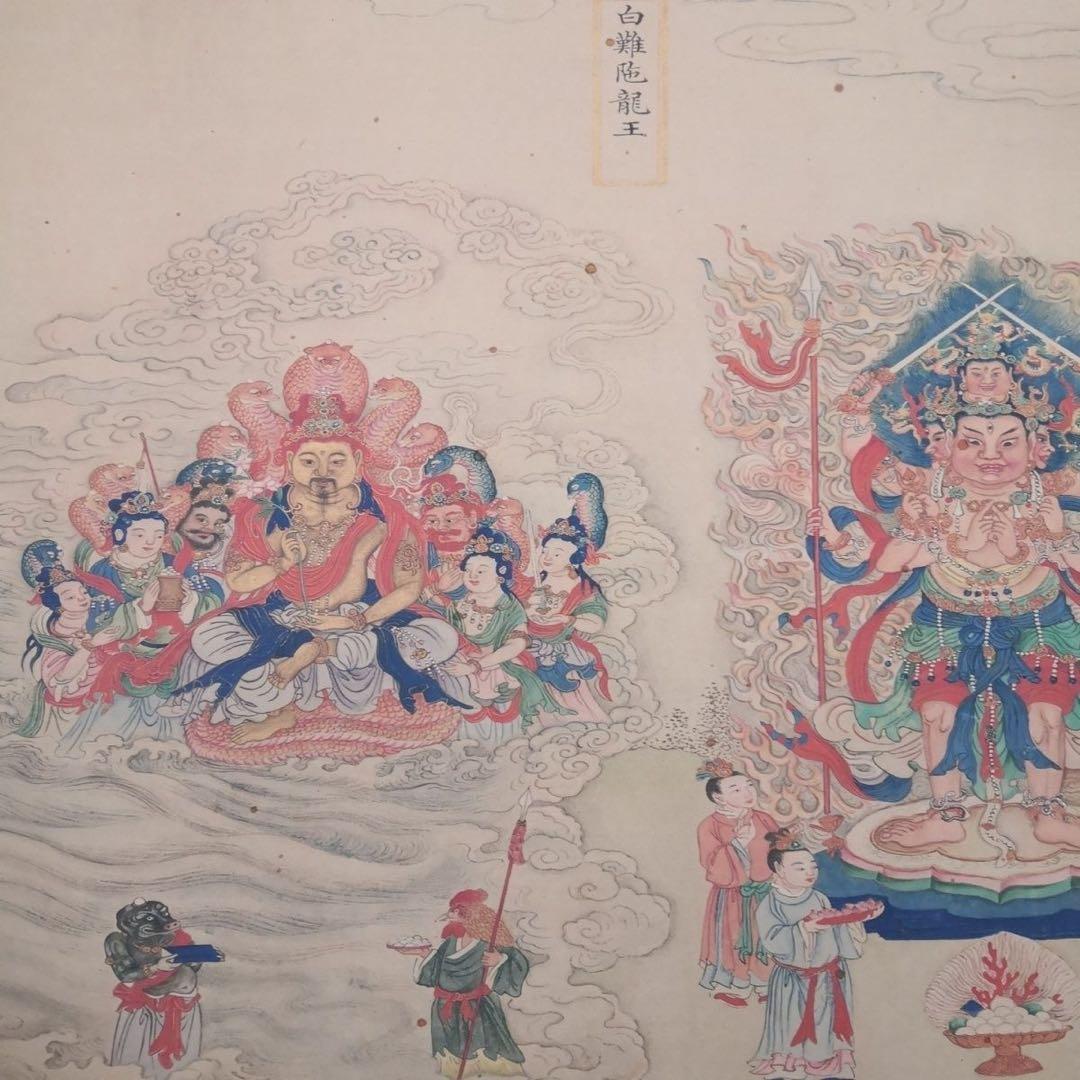 白難陁龍王